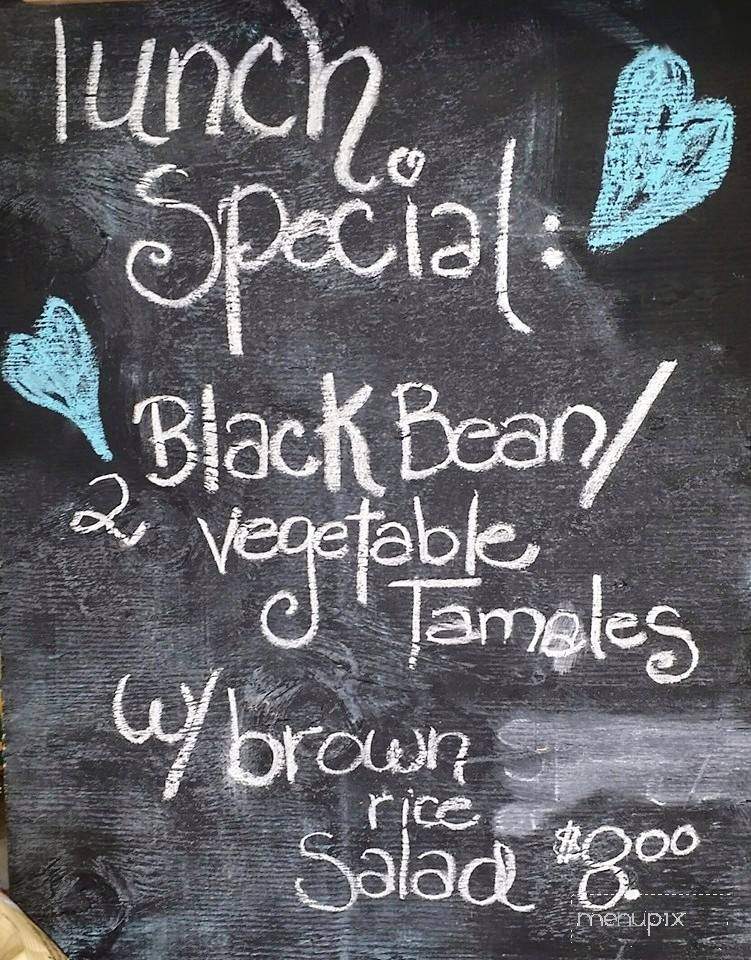 lunch
Special:
Black Bean/
2 vegetable
Tamales
w/ brown
rice
Salad $8.00
menupix